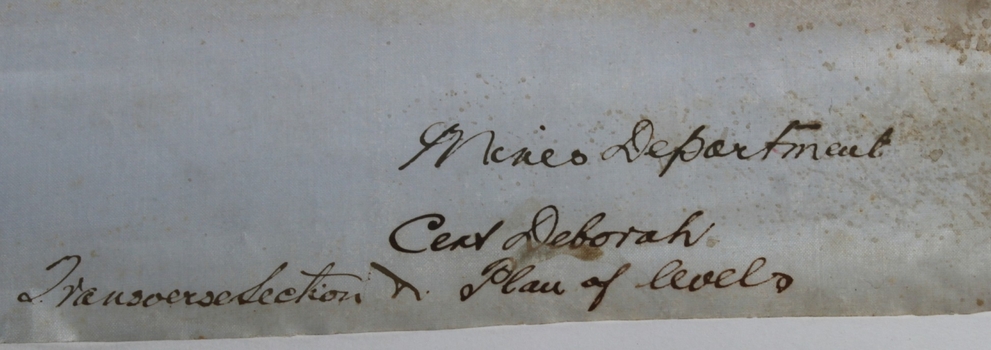 Mines Department
Cent Deborah
Transverse Section & Plan of levels